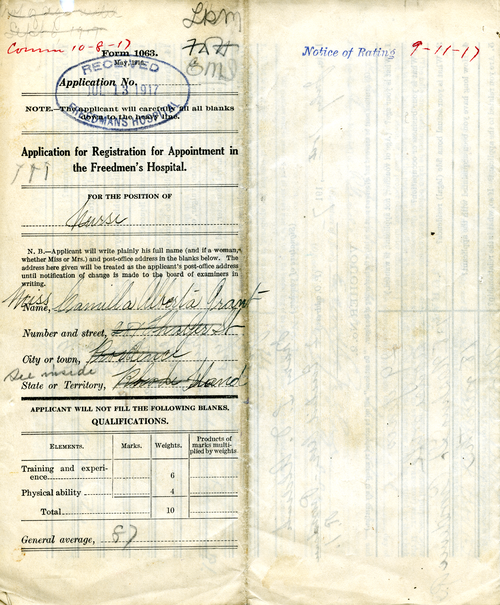 LHM
Comm 10-8-17
Form 1063.
May, 1911
Application No.
RECEIVED
JUL 13 1917
FREEDMANS HOSPITAL
NOTE.—The applicant will carefully fill all blanks
above to the heavy line.
Application for Registration for Appointment in
the Freedmen's Hospital.
FOR THE POSITION OF
Nurse
N. B.—Applicant will write plainly his full name (and if a woman,
whether Miss or Mrs.) and post-office address in the blanks below. The
address here given will be treated as the applicant's post-office address
until notification of change is made to the board of examiners in
writing.
Miss
Name, Camilla Alberta Grant
Number and street,
City or town, Providence
See inside
State or Territory, Rhode Island
APPLICANT WILL NOT FILL THE FOLLOWING BLANKS,
QUALIFICATIONS.
ELEMENTS. Marks. Weights. Products of marks multiplied by weights.
Training and experi-
ence 6
Physical ability 4
Total 10
General average, 87
Notice of Rating 9-11-17